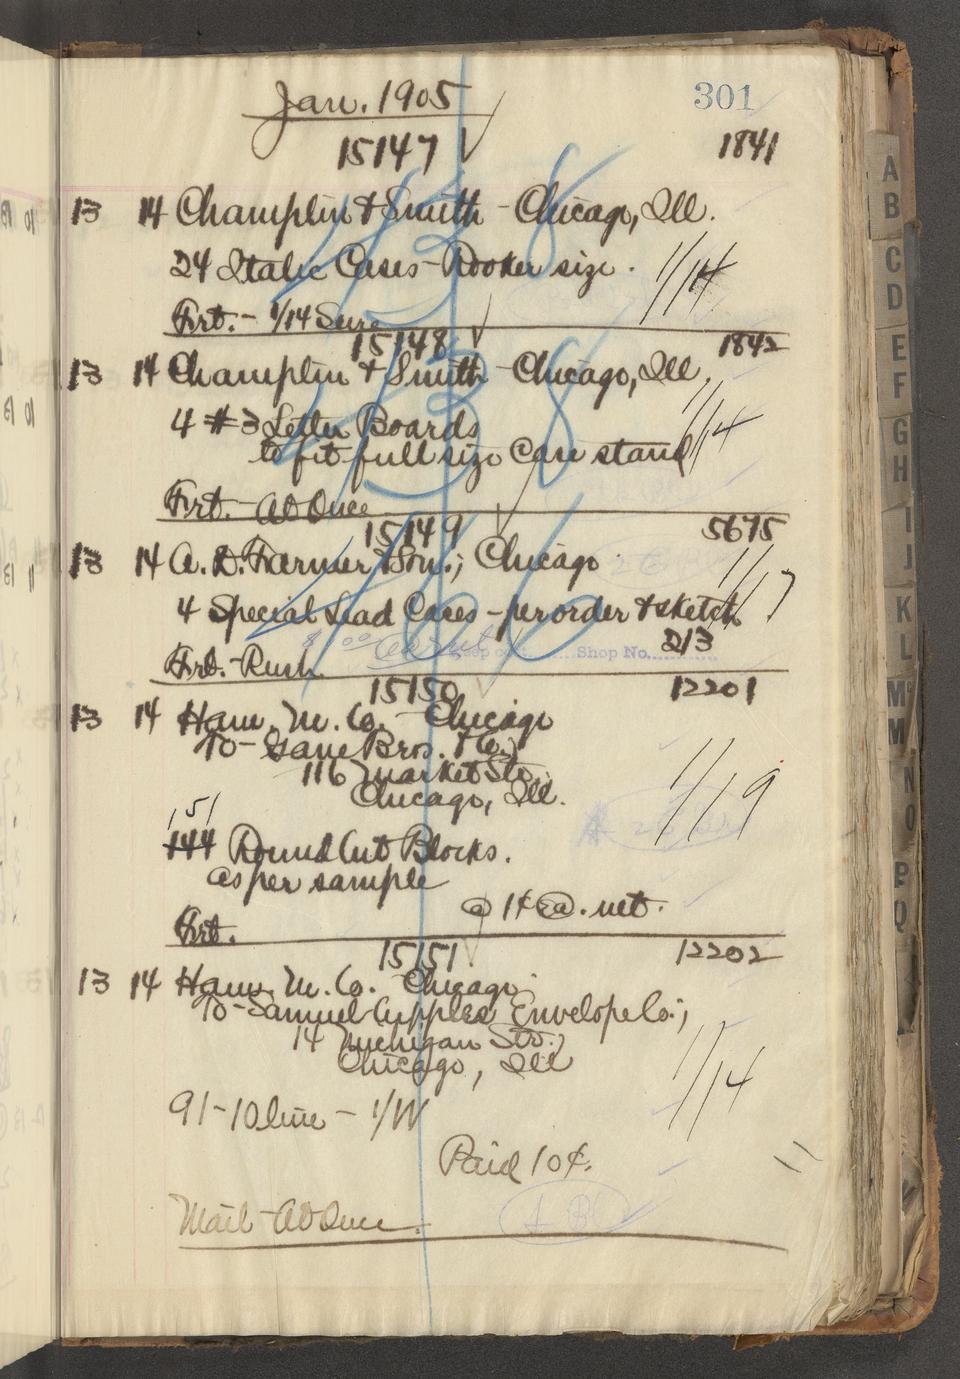 301
Jan. 1905
15147 1841
13 14 Champlin & Smith - Chicago, Ill.
24 Italic Cases - Rooker size. 1/14
Frt. - 1/14 Sure
15148 1842
13 14 Champlin & Smith - Chicago, Ill.
4 #3 Letter Boards 1/14
to fit full size Case stand
Frt. - At Once
15149 5675
13 14 A. D. Farmer & Son.; Chicago 1/17
4 Special Lead Cases - per order & sketch
8 00 Shop No. 213
Frt. - Rush.
15150 12201
13 14 Ham. M. Co. - Chicago
To - Gane Bros. & Co.;
116 Market St.,
Chicago, Ill. 1/19
151
144 Round Cut Blocks.
as per sample
@ 1¢ ea. net.
Frt.
15151 12202
13 14 Ham. M. Co. Chicago
To - Samuel Cupples Envelope Co.;
14 Michigan St.;
Chicago, Ill 1/14
91 - 10 line - 1/W
Paid 10¢.
Mail - At Once.
A
B
C
D
E
F
G
H
I
J
K
L
M
M
N
O
P
Q